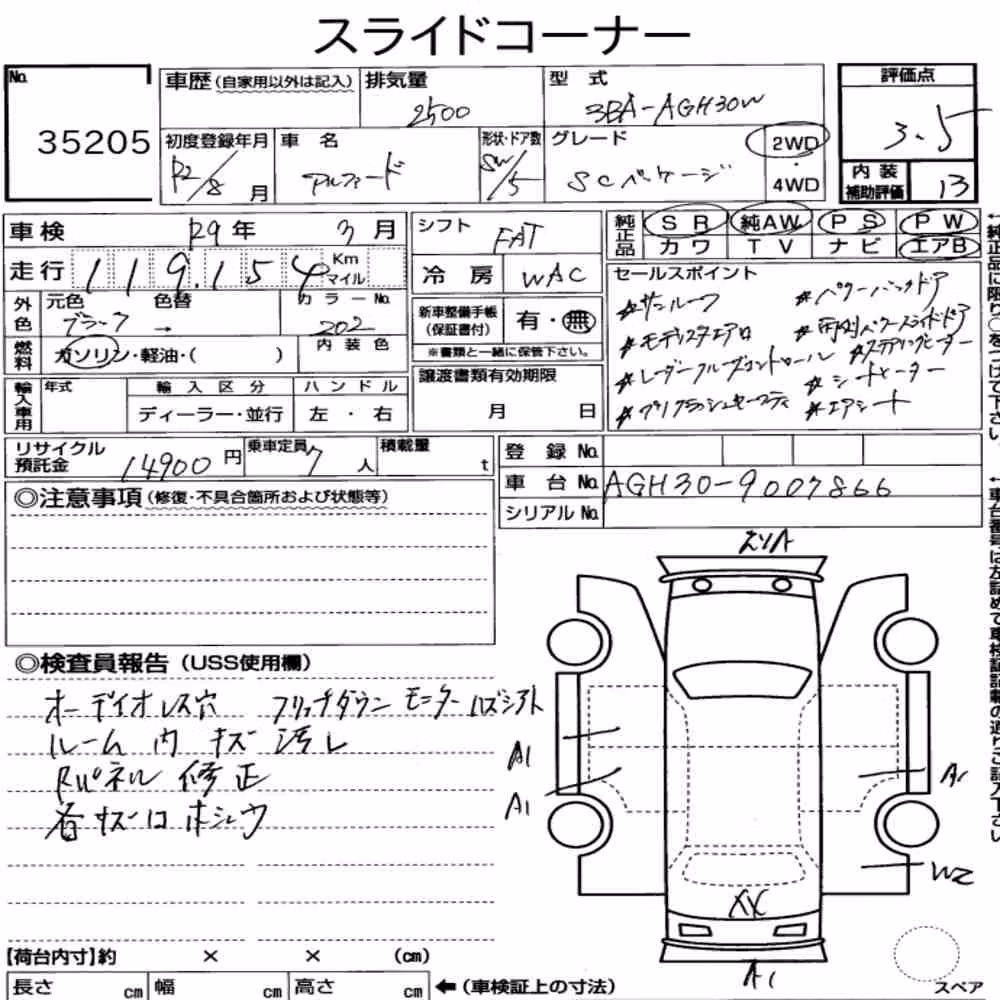 スライドコーナー
No. 35205
車歴 (自家用以外は記入) 排気量 2500 型式 3BA-AGH30W
初度登録年月 R2/8月 車名 アルファード 形状・ドア数 SW/5 グレード SCパケージ 2WD・4WD
評価点 3.5
内装補助評価 13
車検 R9年 3月
走行 119,154 Km マイル
外色 元色 ブラック 色替 → カラーNo. 202
燃料 ガソリン・軽油・( ) 内装色
輸入車用 年式 輸入区分 ディーラー・並行 ハンドル 左・右
シフト FAT
冷房 WAC
新車整備手帳(保証書付) 有・無
※書類と一緒に保管下さい。
譲渡書類有効期限 月 日
純正品 SR 純AW PS PW
カワ TV ナビ エアB
セールスポイント
#サンルーフ #パワーバックドア
#モデリスタエアロ #両側パワースライドドア
#レーダークルーズコントロール #ステアリングヒーター
#プリクラッシュセーフティ #シートヒーター
#エアシート
リサイクル預託金 14900円 乗車定員 7人 積載量 t
登録No.
車台No. AGH30-9007866
シリアルNo.
◎注意事項 (修復・不具合箇所および状態等)
◎検査員報告 (USS使用欄)
オーディオレス穴 フリップダウンモニターハズシアト
ルーム内キズ汚レ
Rパネル修正
各キズ口ホシュウ
A1
A1
A1
W2
XX
A1
スペア
【荷台内寸】約 × × (cm)
長さ cm 幅 cm 高さ cm ←(車検証上の寸法)